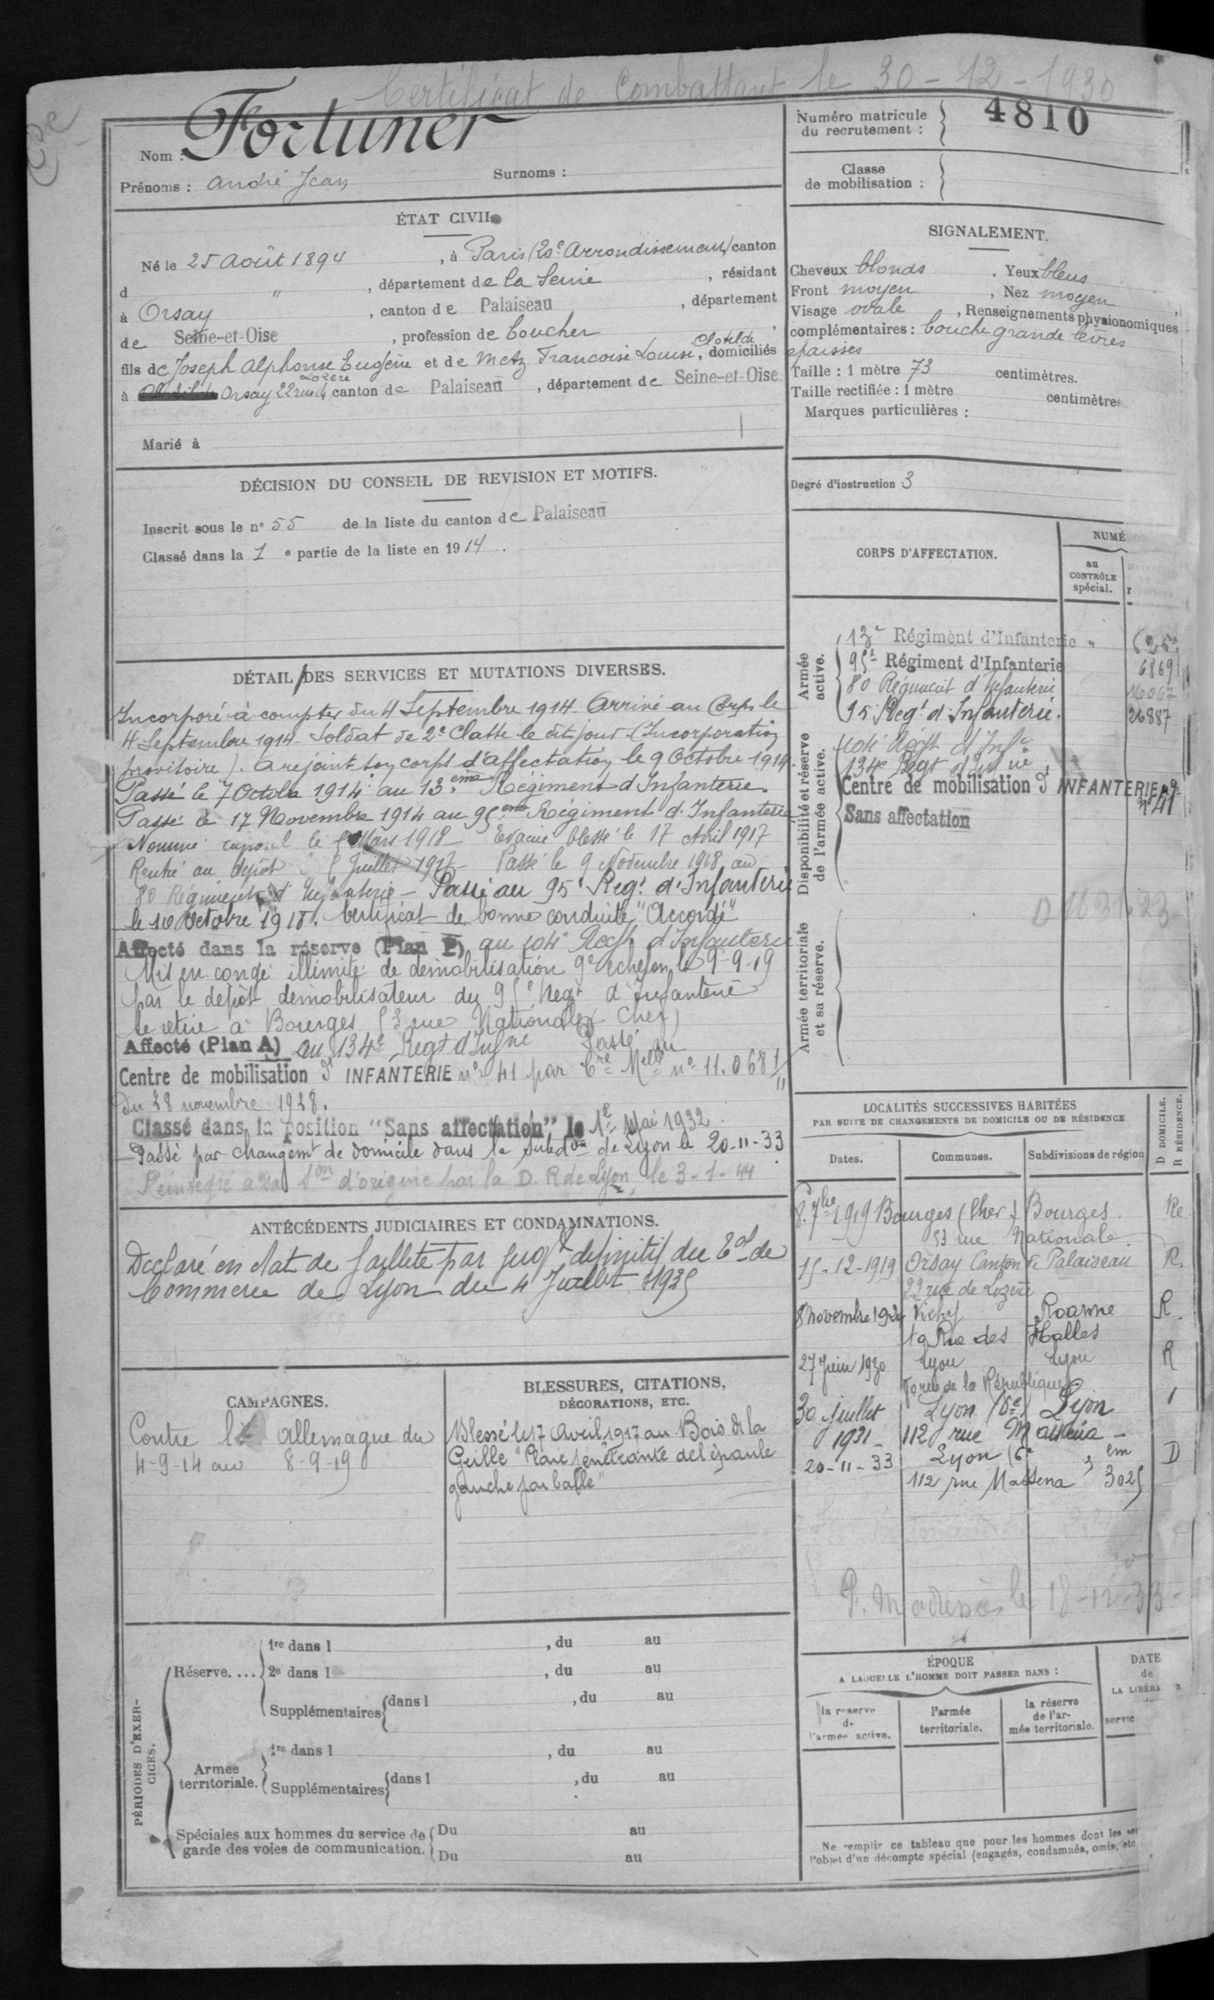 Certificat de Combattant le 30-12-1930
Nom : Fortuner
Prénoms : André Jean
Surnoms :
Numéro matricule
du recrutement :
4810
Classe
de mobilisation :
ÉTAT CIVIL
Né le 25 Août 1894, à Paris (20e Arrondissement) canton
d " , département de la Seine, résidant
à Orsay, canton de Palaiseau, département
de Seine-et-Oise, profession de boucher,
fils de Joseph Alphonse Eugène et de Metz Francoise Louise Clotilde, domiciliés
à Orsay 22 rue de Lozère canton de Palaiseau, département de Seine-et-Oise
Marié à
SIGNALEMENT.
Cheveux blonds. Yeux bleus
Front moyen, Nez moyen,
Visage ovale, Renseignements physionomiques
complémentaires : bouche grande lèvres
epaisses
Taille : 1 mètre 73 centimètres.
Taille rectifiée : 1 mètre centimètres
Marques particulières :
Degré d'instruction 3
DÉCISION DU CONSEIL DE REVISION ET MOTIFS.
Inscrit sous le no 55 de la liste du canton de Palaiseau
Classé dans la 1e partie de la liste en 1914.
CORPS D'AFFECTATION.
NUMÉ
au
CONTRÔLE
spécial.
Armée
active.
13e Régiment d'Infanterie "
95e Régiment d'Infanterie 6869
80 Régiment d'Infanterie 16067
95e Regt d'Infanterie. 26887
Disponibilité et réserve
de l'armée active.
104e Regt d'Infie
134e Regt d'Infie
Centre de mobilisation d'INFANTERIE
no 41
Sans affectation
Armée territoriale
et sa réserve.
DÉTAIL DES SERVICES ET MUTATIONS DIVERSES.
Incorporé à compter du 4 Septembre 1914. Arrivé au Corps le
4 Septembre 1914. Soldat de 2e Classe le dit jour (Incorporation
provisoire). A rejoint son corps d'affectation le 9 Octobre 1914.
Passé le 7 Octobre 1914 au 13eme Régiment d'Infanterie.
Passé le 17 Novembre 1914 au 95eme Régiment d'Infanterie
Nommé caporal le Mars 1918 Evacué blessé le 17 Avril 1917
Rentré au dépôt Juillet 1917 - Passé le 9 Novembre 1918 au
80 Régiment d'Infanterie - Passé au 95e Regt d'Infanterie
le 10 Octobre 1918. Certificat de bonne conduite "Accordé"
Affecté dans la réserve (Plan P) au 104e Regt d'Infanterie
Mis en congé illimité de démobilisation 9e echelon le 9-9-19
par le dépôt démobilisateur du 95e Regt d'Infanterie
se retire à Bourges 53 rue Nationale (Cher)
Affecté (Plan A) au 134e Regt d'Infie Passé au
Centre de mobilisation d'INFANTERIE no 41 par Cre Mlle no 11.068 1/11
du 28 novembre 1928.
Classé dans la position "Sans affectation" le 1er Mai 1932
Passé par changemt de domicile dans la subdon de Lyon le 20-11-33
Réintégré à sa son d'origine par la D. R de Lyon, le 3-1-44
ANTÉCÉDENTS JUDICIAIRES ET CONDAMNATIONS.
Déclaré en état de faillite par jugt définitif du Tal de
Commerce de Lyon du 4 Juillet 1935
CAMPAGNES.
Contre l'Allemagne du
4-9-14 au 8-9-19
BLESSURES, CITATIONS,
DÉCORATIONS, ETC.
Blessé le 17 Avril 1917 au Bois de la
Grille "Plaie pénétrante de l'épaule
gauche par balle"
LOCALITÉS SUCCESSIVES HABITÉES
PAR SUITE DE CHANGEMENTS DE DOMICILE OU DE RÉSIDENCE
D DOMICILE.
R RÉSIDENCE.
Dates. Communes. Subdivisions de région
8. 7bre 1919 Bourges (Cher) Bourges. Re.
53 rue Nationale.
15-12-1919 Orsay Canton de Palaiseau R.
22 rue de Lozère
8 novembre 192 Vichy Roanne R.
19 Rue des Halles
27 Juin 1930 Lyon Lyon R
rue de la République
30 Juillet 1931 Lyon (6e) Lyon
112 rue Masséna
20-11-33 Lyon (6e D
112 rue Massena 3025
18-12-33
PÉRIODES D'EXER-
CICES.
Réserve....
1re dans l , du au
2e dans l , du au
Supplémentaires dans l , du au
Armée
territoriale.
1re dans l , du au
Supplémentaires dans l , du au
Spéciales aux hommes du service de
garde des voies de communication.
Du au
Du au
ÉPOQUE
A LAQUELLE L'HOMME DOIT PASSER DANS :
la réserve
de
l'armée active.
l'armée
territoriale.
la réserve
de l'ar-
mée territoriale.
DATE
de
LA LIBÉRA
servic
Ne remplir ce tableau que pour les hommes dont les ser
l'objet d'un décompte spécial (engagés, condamnés, omis, etc